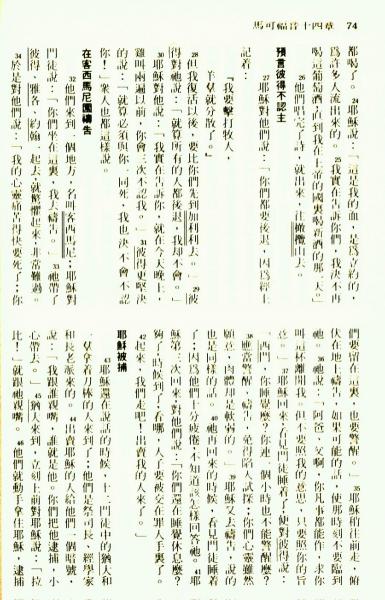 馬可福音十四章 74
都喝了。24耶穌說:「這是我的血,是為立約的,
為許多人流出來的。25我實在告訴你們,我決不再
喝這葡萄酒,直到我在上帝的國裏喝新酒的那一天。」
26他們唱完了詩,就出來,往橄欖山去。
預言彼得不認主
27耶穌對他們說:「你們都要後退,因為經上
記着:
『我要擊打牧人,
羊羣就分散了。』
28但我復活以後,要比你們先到加利利去。」29彼
得對祂說:「就算所有的人都後退,我却不會。」
30耶穌對他說:「我實在告訴你,就在今天晚上,
雞叫兩遍以前,你會三次不認我。」31彼得更堅決
的說:「就算必須與你一同死,我也決不會不認
你!」衆人也都這樣說。
在客西馬尼園禱告
32他們來到一個地方,名叫客西馬尼。耶穌對
門徒說:「你們坐在這裏,我去禱告。」33祂帶了
彼得、雅各、約翰一起去,就驚懼起來,非常難過。
34於是對他們說:「我的心靈痛苦得快要死了;你
們要留在這裏,也要警醒。」35耶穌稍往前走,俯
伏在地上禱告,如果可能的話,使那時刻不要臨到
祂。36祂說:「阿爸、父啊,你凡事都能作,求你
叫這杯離開我。但不要照我的意思,只要照你的旨
意。」37耶穌回來,看見門徒睡着了,便對彼得說:
「西門,你睡覺麼?你連一個小時也不能警醒麼?
38應當警醒、禱告,免得陷入試探;你們心靈雖然
願意,肉體却是軟弱的。」39耶穌又去禱告,說的
也是同樣的話。40祂再回來的時候,看見門徒睡着
了;因為他們十分疲倦,不知道該怎樣回答祂。41耶
穌第三次回來,對他們說:「你們還在睡覺休息麼?
夠了,時候到了;看哪,人子要被交在罪人手裏了。
42起來,我們走吧!出賣我的人來了。」
耶穌被捕
43耶穌還在說話的時候,十二門徒中的猶大和
一羣拿着刀棒的人來了;他們是祭司長、經學家
和長老派來的。44出賣耶穌的人給他們一個暗號,
說:「我跟誰親嘴,誰就是他。你們把他逮捕,小
心帶去。」45猶大來到,立刻上前對耶穌說:「拉
比!」就跟祂親嘴。46他們就動手拿住耶穌,逮捕